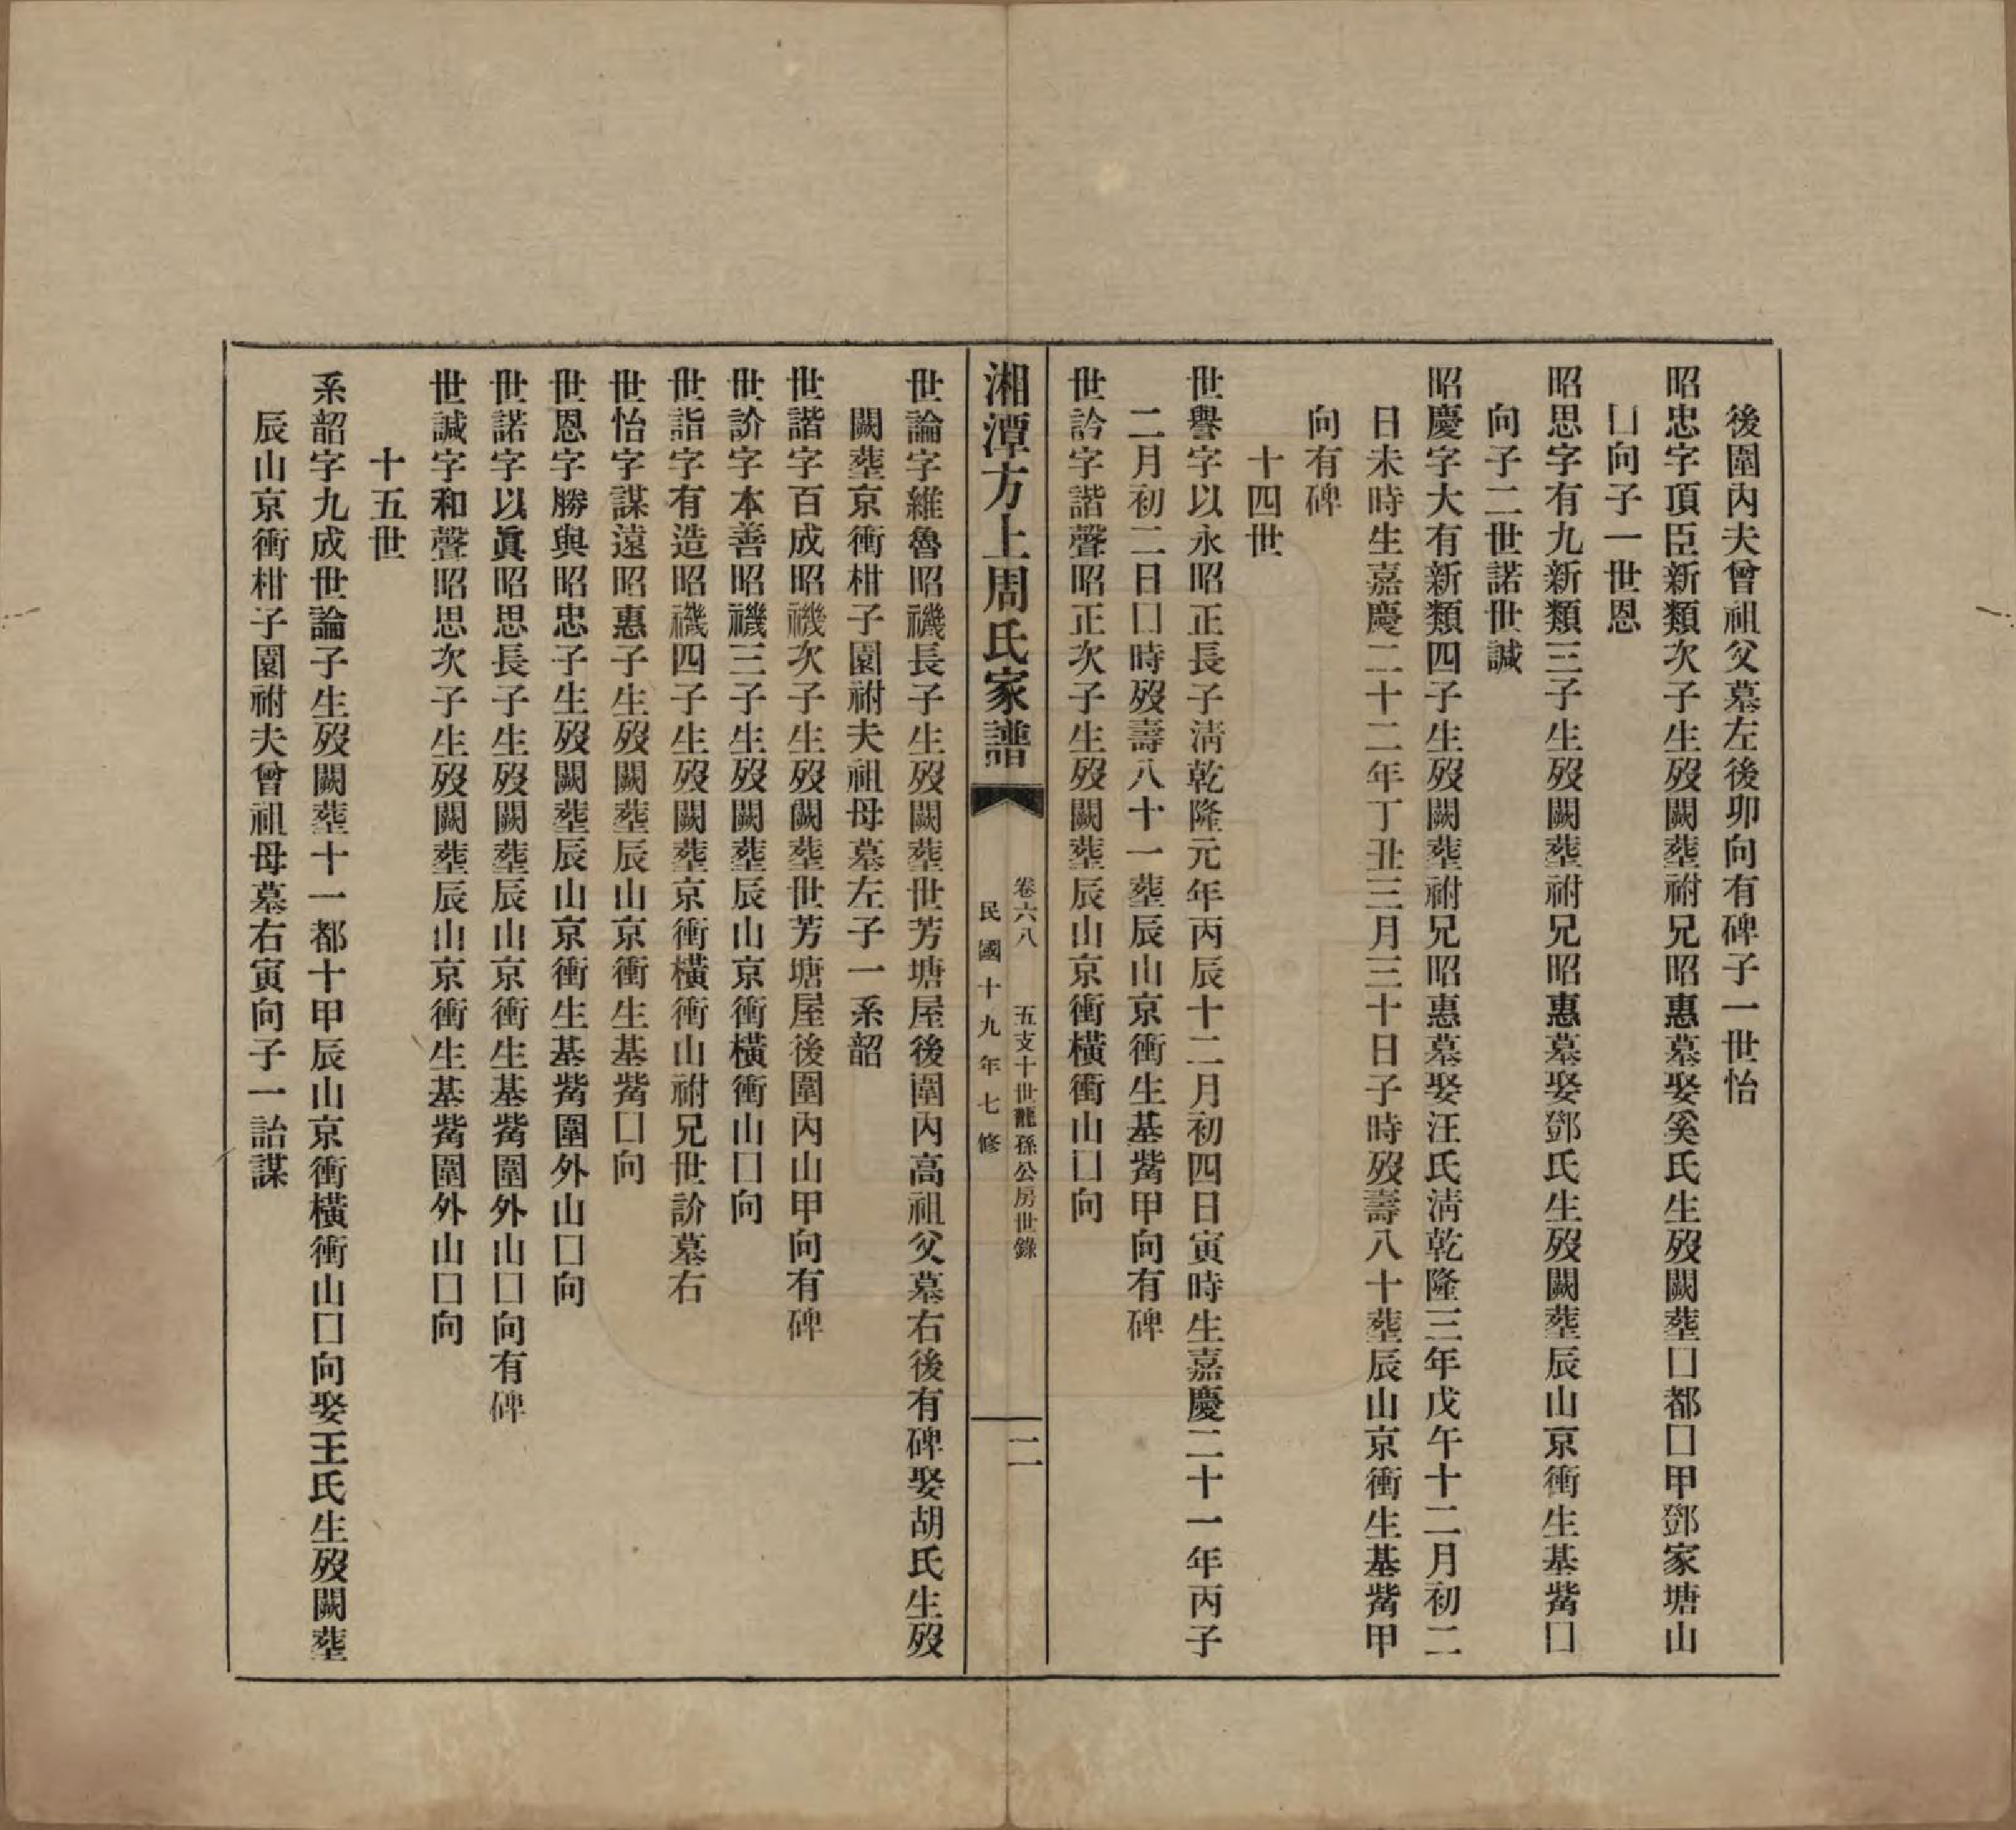 後圍內夫曾祖父墓左後卯向有碑子一世怡
昭忠字頂臣新類次子生歿闕塟祔兄昭惠墓娶奚氏生歿闕塟囗都囗甲鄧家塘山
囗向子一世恩
昭思字有九新類三子生歿闕塟祔兄昭惠墓娶鄧氏生歿闕塟辰山京衝生基嘴囗
向子二世諾世諴
昭慶字大有新類四子生歿闕塟祔兄昭惠墓娶汪氏清乾隆三年戊午十二月初二
日未時生嘉慶二十二年丁丑三月三十日子時歿壽八十塟辰山京衝生基嘴甲
向有碑
十四世
世譽字以永昭正長子清乾隆元年丙辰十二月初四日寅時生嘉慶二十一年丙子
二月初二日囗時歿壽八十一塟辰山京衝生基嘴甲向有碑
世訡字諧聲昭正次子生歿闕塟辰山京衝橫衝山囗向
湘潭方上周氏家譜
卷六八 五支十世龍孫公房世錄
民國十九年七修
二
世論字維魯昭禨長子生歿闕塟世芳塘屋後圍內高祖父墓右後有碑娶胡氏生歿
闕塟京衝柑子園祔夫祖母墓左子一系韶
世諧字百成昭禨次子生歿闕塟世芳塘屋後圍內山甲向有碑
世訡字本善昭禨三子生歿闕塟辰山京衝橫衝山囗向
世詣字有造昭禨四子生歿闕塟京衝橫衝山祔兄世訡墓右
世怡字謀遠昭惠子生歿闕塟辰山京衝生基嘴囗向
世恩字勝與昭忠子生歿闕塟辰山京衝生基嘴圍外山囗向
世諾字以眞昭思長子生歿闕塟辰山京衝生基嘴圍外山囗向有碑
世諴字和聲昭思次子生歿闕塟辰山京衝生基嘴圍外山囗向
十五世
系韶字九成世論子生歿闕塟十一都十甲辰山京衝橫衝山囗向娶王氏生歿闕塟
辰山京衝柑子園祔夫曾祖母墓右寅向子一詒謀